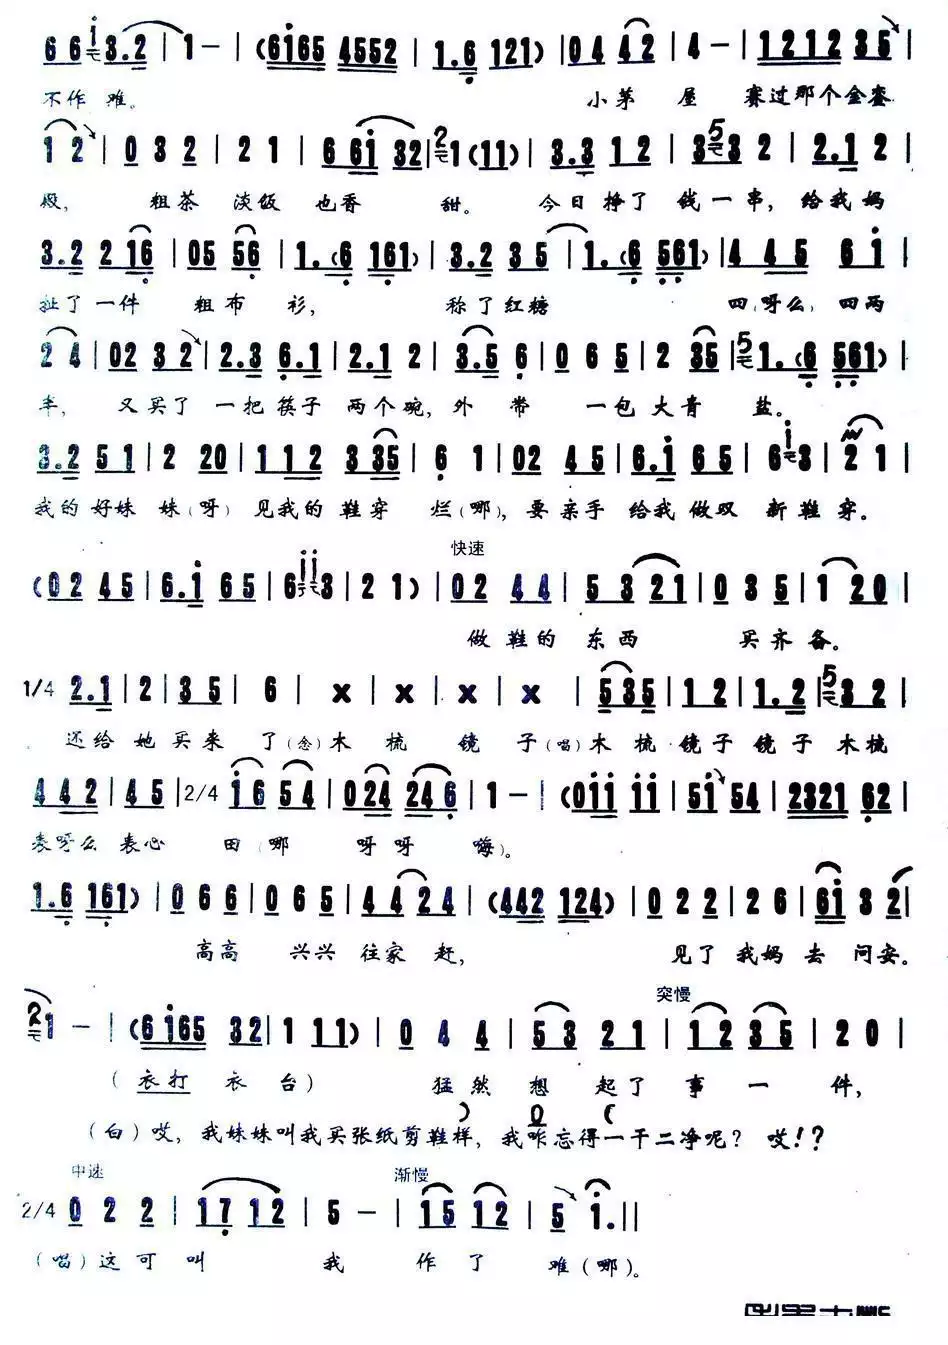 6 6 3.2 | 1 — | (6i65 4552 | 1.6 121) | 0 4 4 2 | 4 — | 1212 3 5 |
不作难。 小茅屋 赛过那个金銮
1 2 | 0 3 2 | 2 1 | 6 6i 32 | 1 (11) | 3.3 1 2 | 3 3 2 | 2.1 2 |
殿, 粗茶 淡饭 也香 甜。 今日挣了 钱一串, 给我妈
3.2 2 16 | 05 56 | 1.(6 161) | 3.2 35 | 1.(6 561) | 4 4 5 6 i |
扯了一件 粗布 衫, 称了红糖 四(呀么)四两
2 4 | 02 3 2 | 2.3 6.1 | 2.1 2 | 3.5 6 | 0 6 5 | 2 35 | 1.(6 561) |
半, 又买了 一把筷子 两个碗, 外带 一包大青 盐。
3.2 51 | 2 20 | 112 335 | 6 1 | 02 45 | 6.i 65 | 6 3 | 2 1 |
我的好妹 妹(呀)见我的鞋穿 烂(哪), 要亲手 给我做双 新鞋穿。
快速
(02 45 | 6.i 65 | 6 3 | 2 1) | 02 44 | 5 3 21 | 0 3 5 | 1 20 |
做鞋的 东西 买齐备。
1/4 2.1 | 2 | 35 | 6 | x | x | x | x | 535 | 12 | 1.2 | 3 2 |
还给她买来 了(念)木 梳 镜 子(唱)木梳 镜子 镜子 木梳
442 | 45 | 2/4 i6 54 | 024 246 | 1 — | (0ii ii | 5i 54 | 2321 62 |
表呀么 表心 田(哪 呀呀 嗨)。
1.6 161) | 0 6 6 | 0 6 5 | 44 24 | (442 124) | 0 2 2 | 2 6 | 6i 3 2 |
高高 兴兴 往家 赶, 见了 我妈去 问安。
突慢
1 — | (6i65 32 | 1 11) | 0 4 4 | 53 21 | 12 35 | 2 0 |
(衣打 衣台) 猛然 想 起了 事一 件,
(白)哎, 我妹妹叫我买张纸剪鞋样, 我咋忘得一干二净呢? 哎!?
中速 渐慢
2/4 0 2 2 | 17 12 | 5 — | 15 12 | 5 i. ||
(唱)这可叫 我 作了 难(哪)。